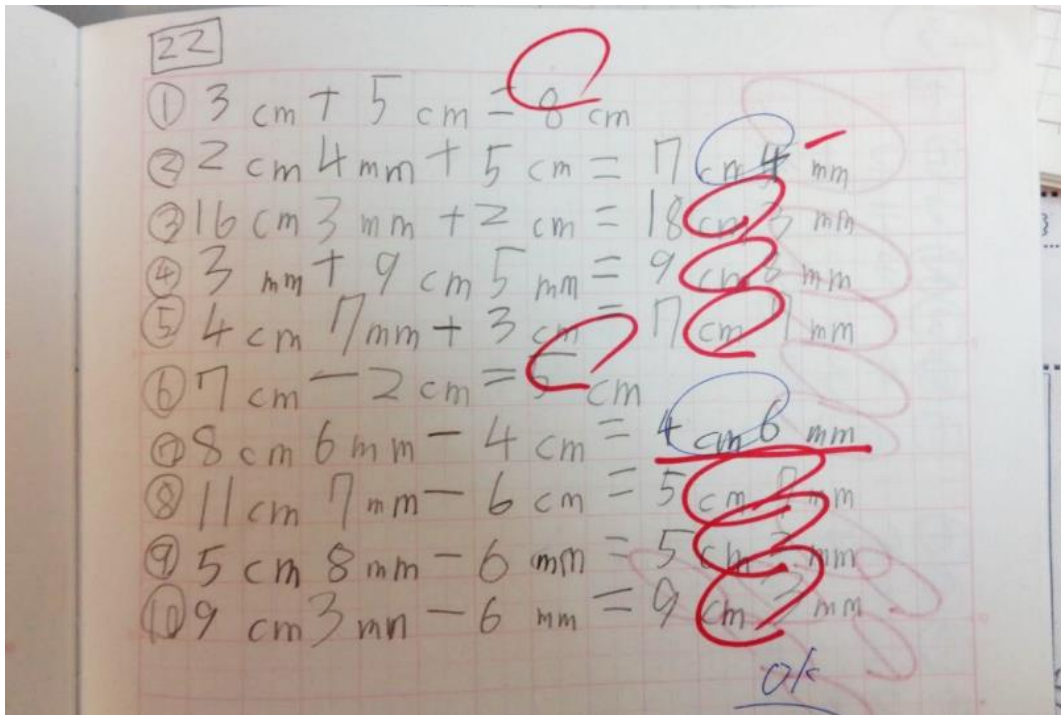 22
① 3 cm + 5 cm = 8 cm
② 2 cm 4 mm + 5 cm = 7 cm 4 mm
③ 16 cm 3 mm + 2 cm = 18 cm 3 mm
④ 3 mm + 9 cm 5 mm = 9 cm 8 mm
⑤ 4 cm 7 mm + 3 cm = 7 cm 7 mm
⑥ 7 cm - 2 cm = 5 cm
⑦ 8 cm 6 mm - 4 cm = 4 cm 6 mm
⑧ 11 cm 7 mm - 6 cm = 5 cm 7 mm
⑨ 5 cm 8 mm - 6 mm = 5 cm 2 mm
⑩ 9 cm 3 mm - 6 mm = 9 cm 3 mm
ok